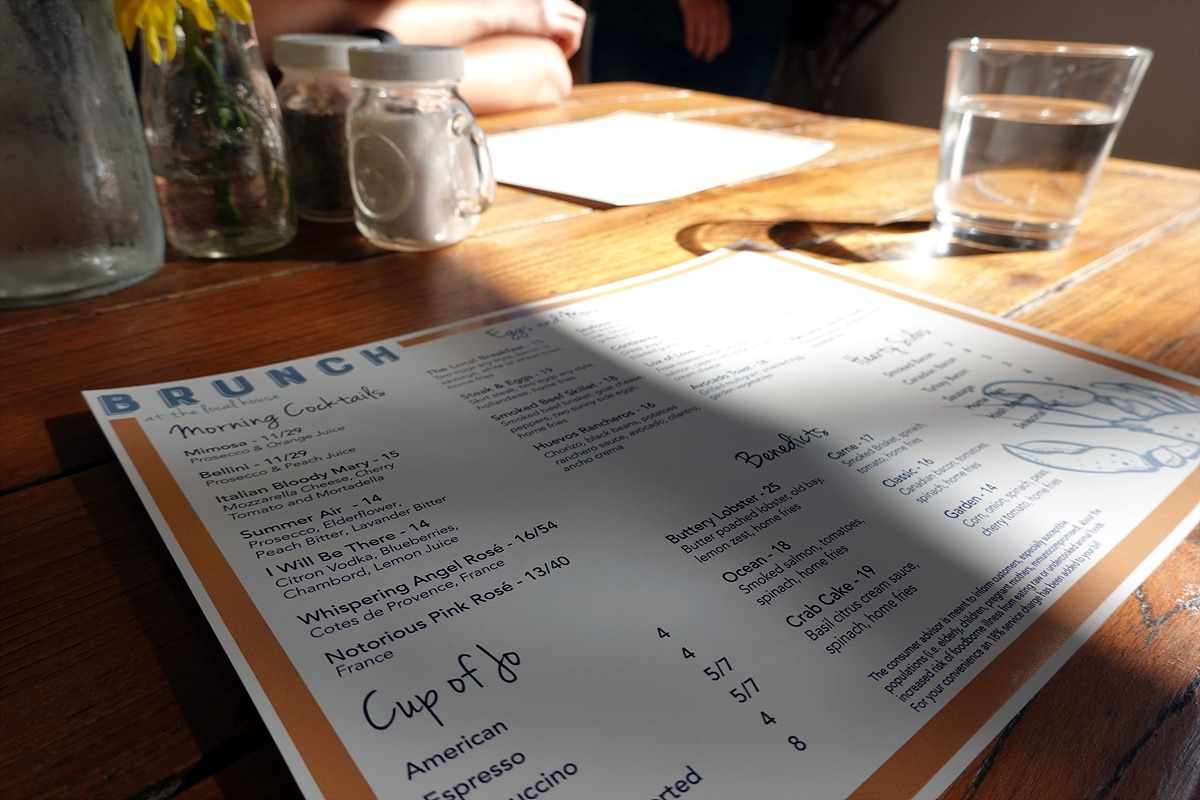 BRUNCH
at the local house
Morning Cocktails
Mimosa - 11/29
Prosecco & Orange Juice
Bellini - 11/29
Prosecco & Peach Juice
Italian Bloody Mary - 15
Mozzarella Cheese, Cherry
Tomato and Mortadella
Summer Air - 14
Prosecco, Elderflower,
Peach Bitter, Lavander Bitter
I Will Be There - 14
Citron Vodka, Blueberries,
Chambord, Lemon Juice
Whispering Angel Rosé - 16/54
Cotes de Provence, France
Notorious Pink Rosé - 13/40
France
Cup of Jo
American
Espresso
4
4
5/7
5/7
4
8
Eggs and
The Local Breakfast - 15
two eggs any style, bacon or
sausage, white or wheat toast,
home fries
Steak & Eggs - 19
Skirt steak, two eggs any style,
hollandaise, home fries
Smoked Beef Skillet - 18
Smoked beef brisket, goat cheese
peppers, two sunny side eggs,
home fries
Huevos Rancheros - 16
Chorizo, black beans, potatoes,
ranchero sauce, avocado, cilantro,
ancho crema
Avocado Toast - 14
garden vegetables
Benedicts
Buttery Lobster - 25
Butter poached lobster, old bay,
lemon zest, home fries
Ocean - 18
Smoked salmon, tomatoes,
spinach, home fries
Crab Cake - 19
Basil citrus cream sauce,
spinach, home fries
Carne - 17
Smoked Brisket, spinach
tomato, home fries
Classic - 16
Canadian bacon, tomatoes,
spinach, home fries
Garden - 14
Corn, onion, spinach, peas,
cherry tomato, home fries
Smoked Bacon
Canadian Bacon
Turkey Bacon
Sausage
The consumer advisor is meant to inform customers, especially susceptible
populations (i.e. elderly, children, pregnant mothers, immunocompromised), about the
increased risk of foodborne illness from eating raw or undercooked animal food.
For your convenience an 18% service charge has been added to your bill.